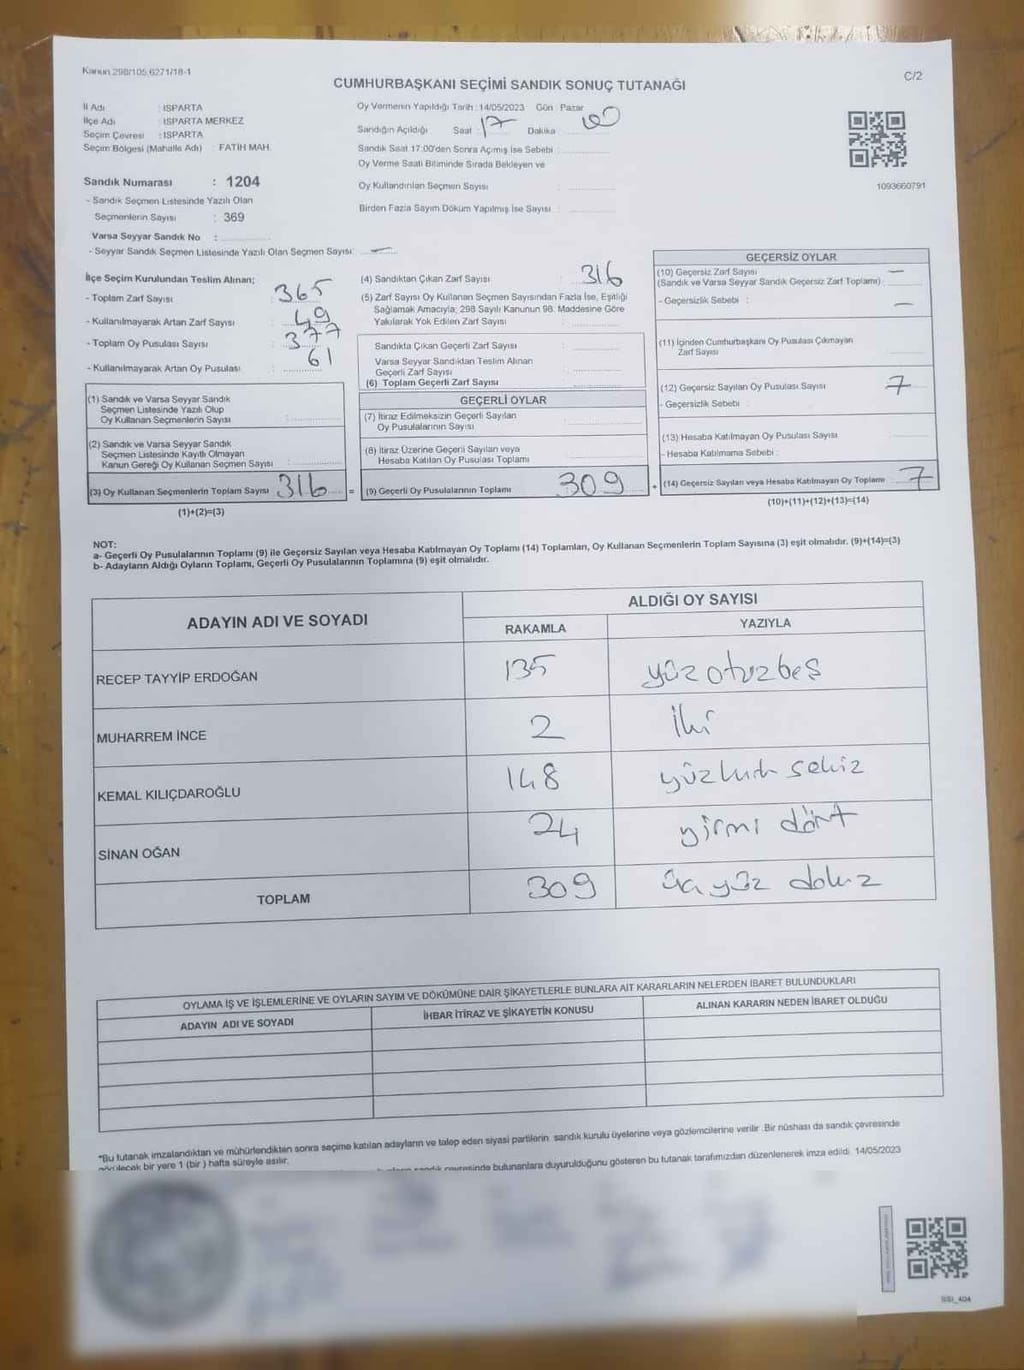 Kanun 298/105,6271/18-1
C/2
CUMHURBAŞKANI SEÇİMİ SANDIK SONUÇ TUTANAĞI
İl Adı : ISPARTA
İlçe Adı : ISPARTA MERKEZ
Seçim Çevresi : ISPARTA
Seçim Bölgesi (Mahalle Adı) : FATİH MAH.
Sandık Numarası : 1204
- Sandık Seçmen Listesinde Yazılı Olan
Seçmenlerin Sayısı : 369
Varsa Seyyar Sandık No :
- Seyyar Sandık Seçmen Listesinde Yazılı Olan Seçmen Sayısı: —
Oy Vermenin Yapıldığı Tarih : 14/05/2023 Gün : Pazar
Sandığın Açıldığı Saat : 17 Dakika :
Sandık Saat 17:00'den Sonra Açımış İse Sebebi :
Oy Verme Saati Bitiminde Sırada Bekleyen ve
Oy Kullandırılan Seçmen Sayısı :
Birden Fazla Sayım Döküm Yapılmış İse Sayısı :
1093660791
İlçe Seçim Kurulundan Teslim Alınan;
- Toplam Zarf Sayısı : 365
- Kullanılmayarak Artan Zarf Sayısı : 49
- Toplam Oy Pusulası Sayısı : 377
- Kullanılmayarak Artan Oy Pusulası : 61
(1) Sandık ve Varsa Seyyar Sandık
Seçmen Listesinde Yazılı Olup
Oy Kullanan Seçmenlerin Sayısı :
(2) Sandık ve Varsa Seyyar Sandık
Seçmen Listesinde Kayıtlı Olmayan
Kanun Gereği Oy Kullanan Seçmen Sayısı :
(3) Oy Kullanan Seçmenlerin Toplam Sayısı 316 =
(1)+(2)=(3)
(4) Sandıktan Çıkan Zarf Sayısı : 316
(5) Zarf Sayısı Oy Kullanan Seçmen Sayısından Fazla İse, Eşitliği
Sağlamak Amacıyla; 298 Sayılı Kanunun 98. Maddesine Göre
Yakılarak Yok Edilen Zarf Sayısı :
Sandıkta Çıkan Geçerli Zarf Sayısı :
Varsa Seyyar Sandıktan Teslim Alınan
Geçerli Zarf Sayısı :
(6) Toplam Geçerli Zarf Sayısı :
GEÇERLİ OYLAR
(7) İtiraz Edilmeksizin Geçerli Sayılan
Oy Pusulalarının Sayısı :
(8) İtiraz Üzerine Geçerli Sayılan veya
Hesaba Katılan Oy Pusulası Toplamı :
(9) Geçerli Oy Pusulalarının Toplamı : 309 +
GEÇERSİZ OYLAR
(10) Geçersiz Zarf Sayısı —
(Sandık ve Varsa Seyyar Sandık Geçersiz Zarf Toplamı) :
- Geçersizlik Sebebi : —
(11) İçinden Cumhurbaşkanı Oy Pusulası Çıkmayan
Zarf Sayısı :
(12) Geçersiz Sayılan Oy Pusulası Sayısı : 7
- Geçersizlik Sebebi :
(13) Hesaba Katılmayan Oy Pusulası Sayısı :
- Hesaba Katılmama Sebebi :
(14) Geçersiz Sayılan veya Hesaba Katılmayan Oy Toplamı : 7
(10)+(11)+(12)+(13)=(14)
NOT:
a- Geçerli Oy Pusulalarının Toplamı (9) ile Geçersiz Sayılan veya Hesaba Katılmayan Oy Toplamı (14) Toplamları, Oy Kullanan Seçmenlerin Toplam Sayısına (3) eşit olmalıdır. (9)+(14)=(3)
b- Adayların Aldığı Oyların Toplamı, Geçerli Oy Pusulalarının Toplamına (9) eşit olmalıdır.
ADAYIN ADI VE SOYADI ALDIĞI OY SAYISI
RAKAMLA YAZIYLA
RECEP TAYYİP ERDOĞAN 135 yüz otuzbeş
MUHARREM İNCE 2 iki
KEMAL KILIÇDAROĞLU 148 yüzkırk sekiz
SİNAN OĞAN 24 yirmi dört
TOPLAM 309 üçyüz dokuz
OYLAMA İŞ VE İŞLEMLERİNE VE OYLARIN SAYIM VE DÖKÜMÜNE DAİR ŞİKAYETLERLE BUNLARA AİT KARARLARIN NELERDEN İBARET BULUNDUKLARI
ADAYIN ADI VE SOYADI İHBAR İTİRAZ VE ŞİKAYETİN KONUSU ALINAN KARARIN NEDEN İBARET OLDUĞU
*Bu tutanak imzalandıktan ve mühürlendikten sonra seçime katılan adayların ve talep eden siyasi partilerin sandık kurulu üyelerine veya gözlemcilerine verilir. Bir nüshası da sandık çevresinde
görülecek bir yere 1 (bir) hafta süreyle asılır.
sandık çevresinde bulunanlara duyurulduğunu gösteren bu tutanak tarafımızdan düzenlenerek imza edildi. 14/05/2023